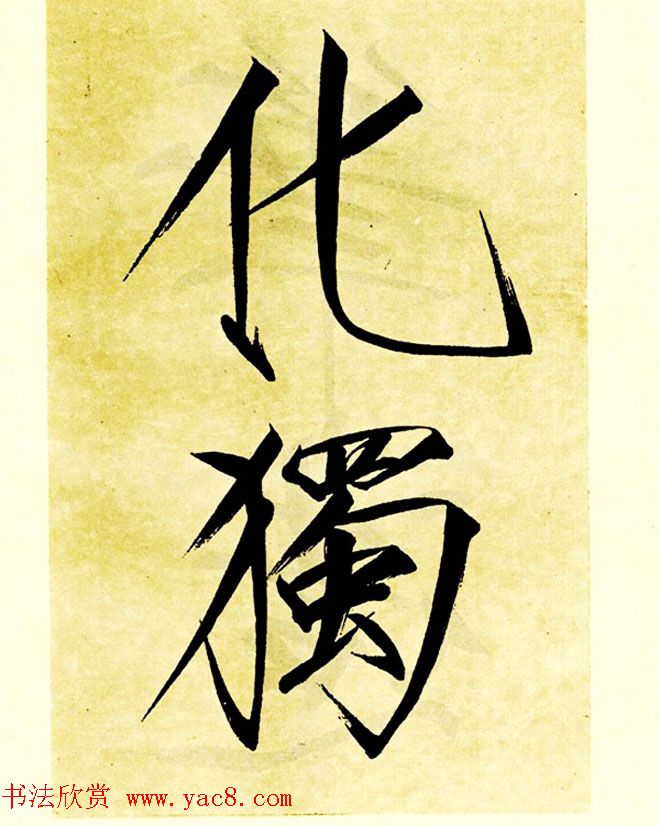 化
獨
书法欣赏 www.yac8.com